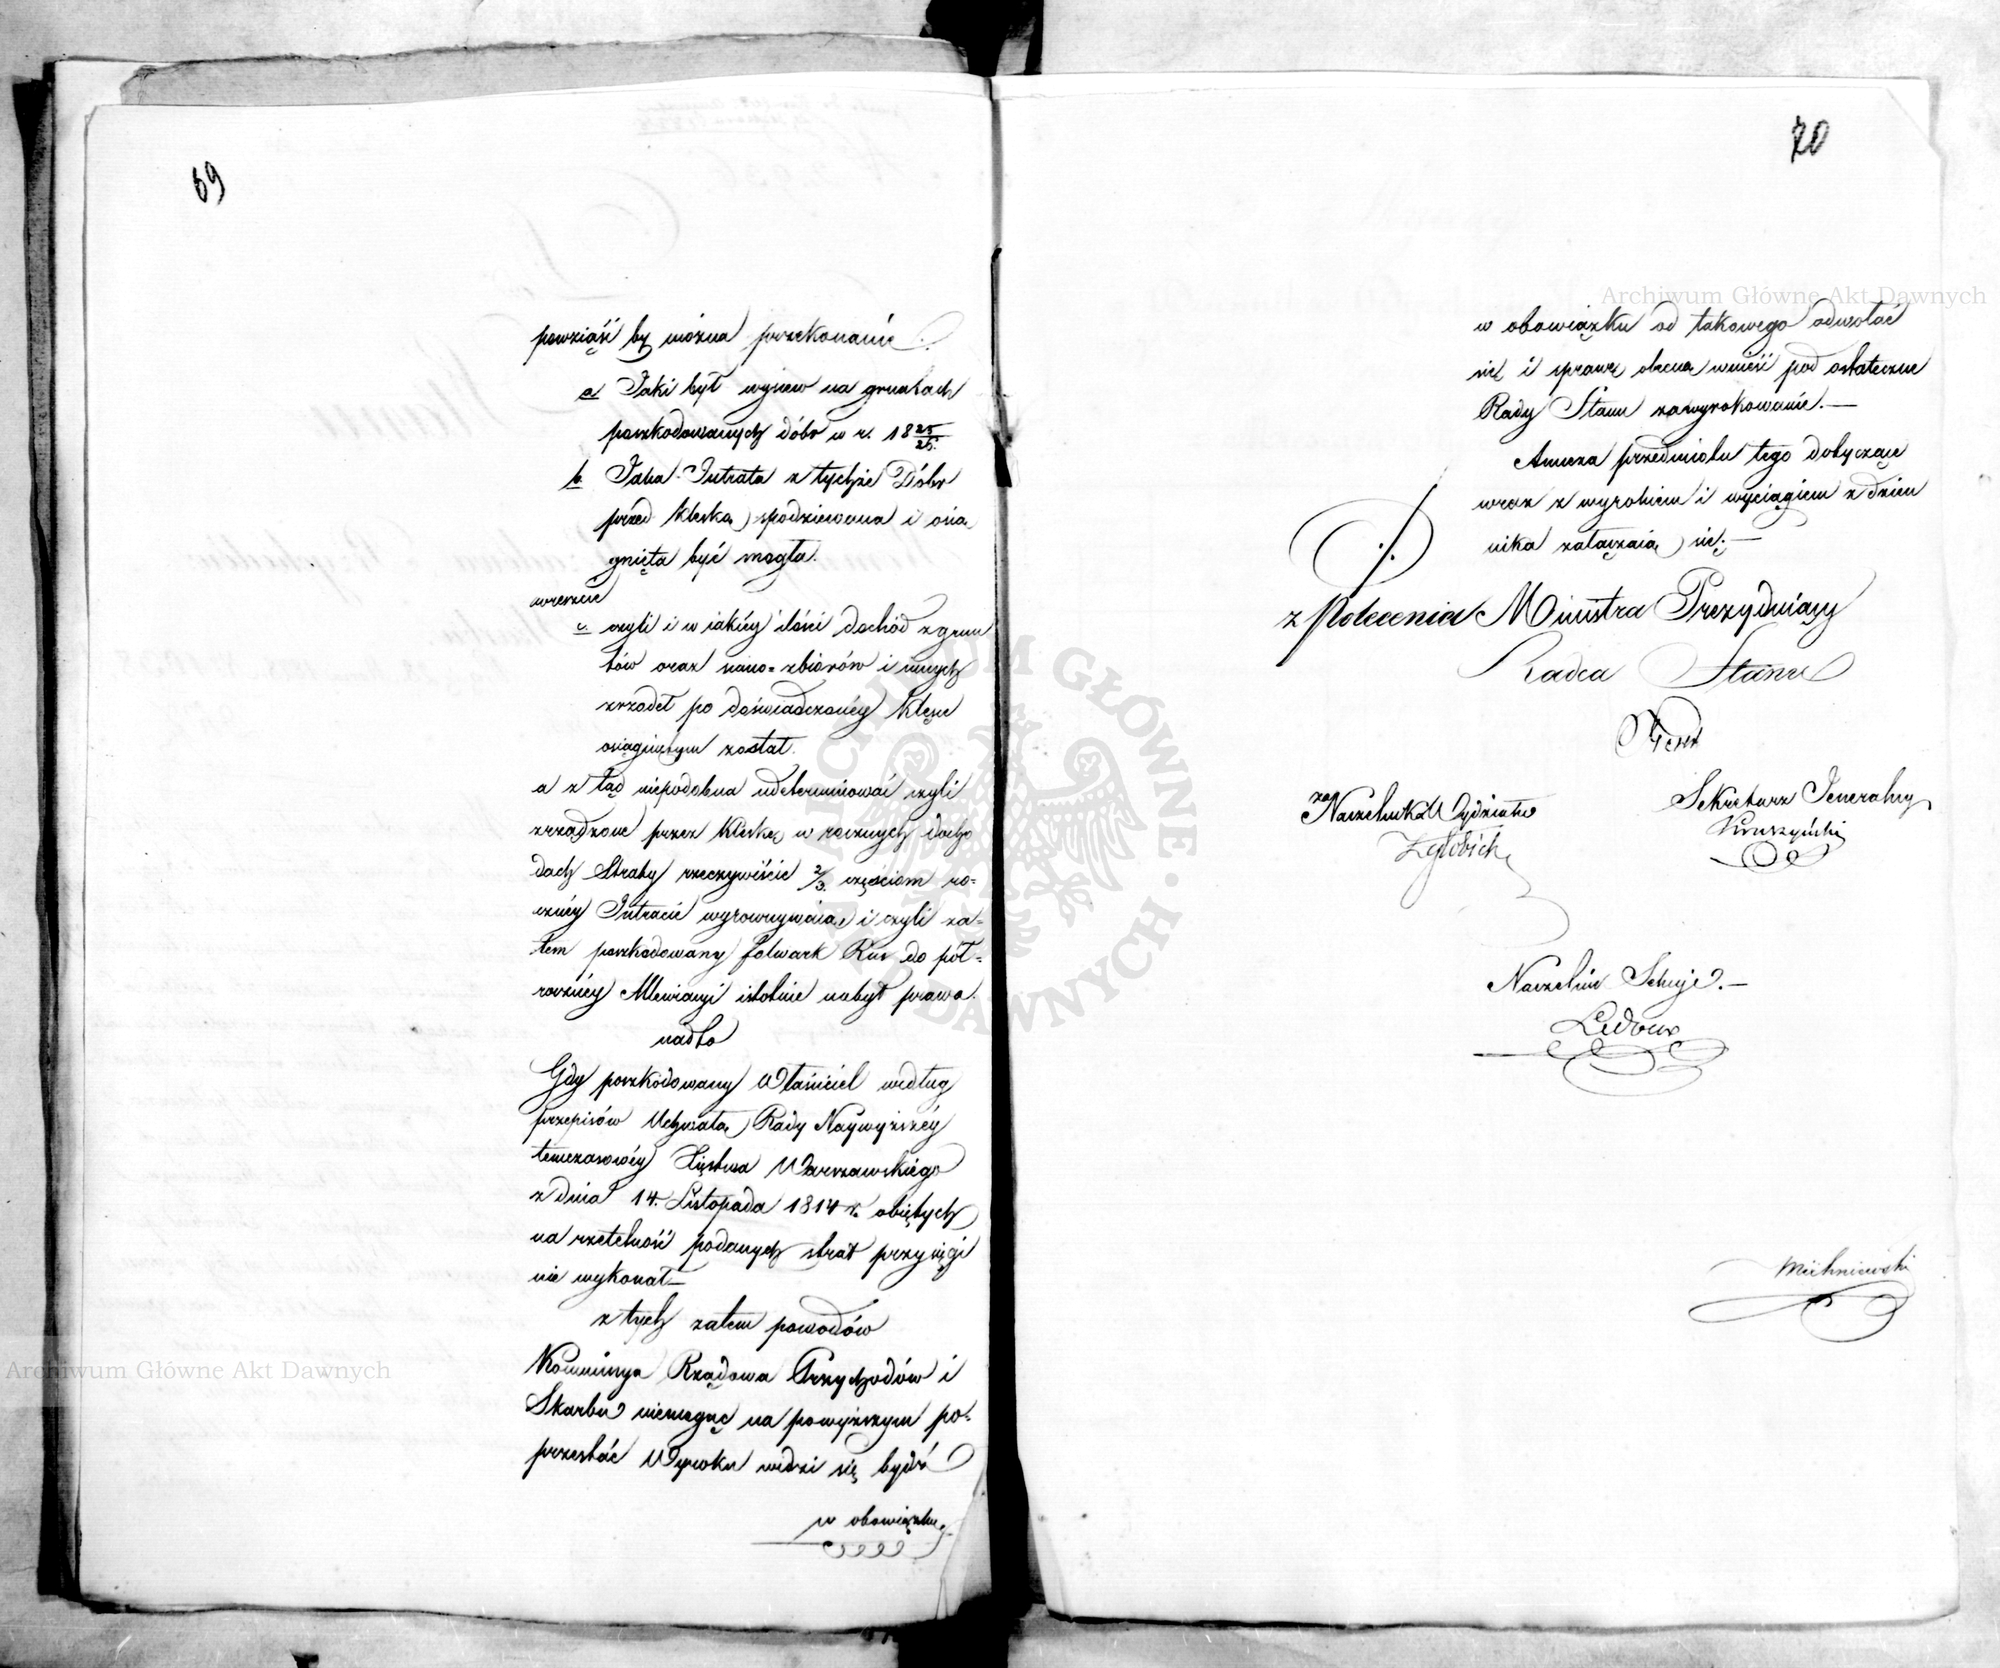 69
powziąść by można przekonanie.
a Jaki był wysiew na gruntach
poszkodowanych dóbr w r. 18 25/26.
b. Jaka Intrata z tychże Dóbr
przed klęską spodziewana i osią
gnięta być mogła.
wreszcie
c. czyli i w iakiéy ilości dochód z grun
tów oraz siano-zbiorów i innych
zrzodeł po doświadczonéy klęsce
osiągniętym został.
a z tąd niepodobna udeterminować czyli
zrządzone przez klęskę w rocznych docho
dach Straty rzeczywiście 2/3. częściom ro=
cznéy Intracie wyrownywaią i czyli za=
tem poszkodowany folwark Rus do pół=
rocznéy Allewiacyi istotnie nabył prawa.
nadto
Gdy poszkodowany Właściciel według
przepisów Uchwałą Rady Naywyższéy
temczasowéy Xięstwa Warszawskiego
z dnia 14. Listopada 1814 r. obiętych
na rzetelność podanych strat przysięgi
nie wykonał—
z tych zatem powodów
Kommissya Rządowa Przychodów i
Skarbu niemogąc na powyższym po=
przestać Wyroku widzi się bydź
w obowiązku
70
w obowiązku od takowego odwołać
się i sprawę obecną wnieść pod ostateczne
Rady Stanu zawyrokowanie.—
Annexa przedmiotu tego dotyczące
wraz z wyrokiem i wyciągiem z dzien
nika załączaią się.—
z Polecenia Ministra Prezyduiący
Radca Stanu
za Naczelnika Wydziału
Sekretarz Jeneralny
Kruszyński
Naczelnik Sekcyi.—
Ledoux
Michniewski
Archiwum Główne Akt Dawnych
Archiwum Główne Akt Dawnych
ARCHIWUM GŁÓWNE AKT DAWNYCH